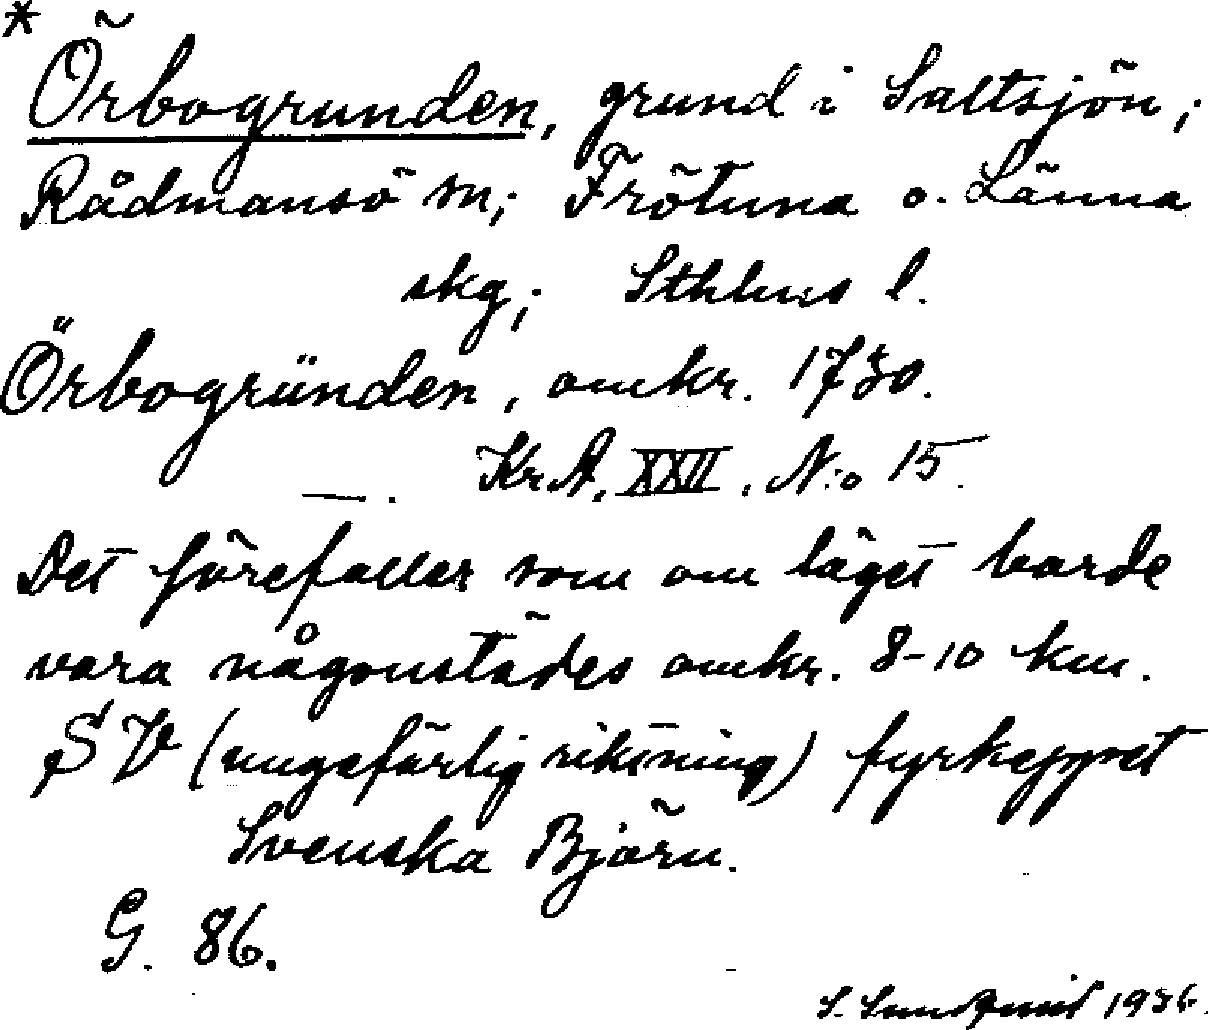 *
Örbogrunden, grund i Saltsjön;
Rådmansö sn; Frötuna o. Länna
skg; Sthlms l.
Örbogründen, omkr. 1730.
—. Kr.A. XXII. N:o 15.
Det förefaller som om läget borde
vara någonstädes omkr. 8-10 km.
SV (ungefärlig riktning) fyrkeppet
Svenska Björn.
G. 86.
S. 1936.